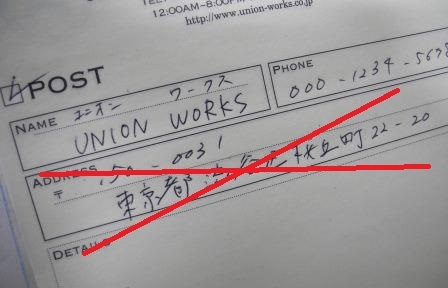 12:00AM–8:00PM
http://www.union-works.co.jp
POST
NAME ユニオン ワークス
UNION WORKS
PHONE
000-1234-5698
ADDRESS
〒150-0031
東京都渋谷区桜丘町22-20
DETAILS